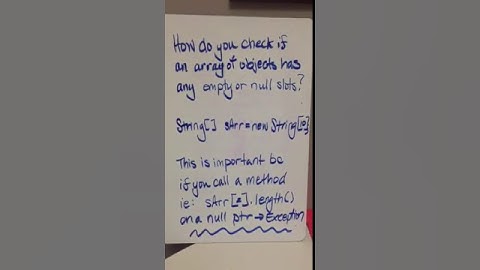 How do you check if
an array of objects has
any empty or null slots?
String[] sArr = new String[10];
This is important bc
if you call a method
ie: sArr[2].length()
on a null ptr → Exception